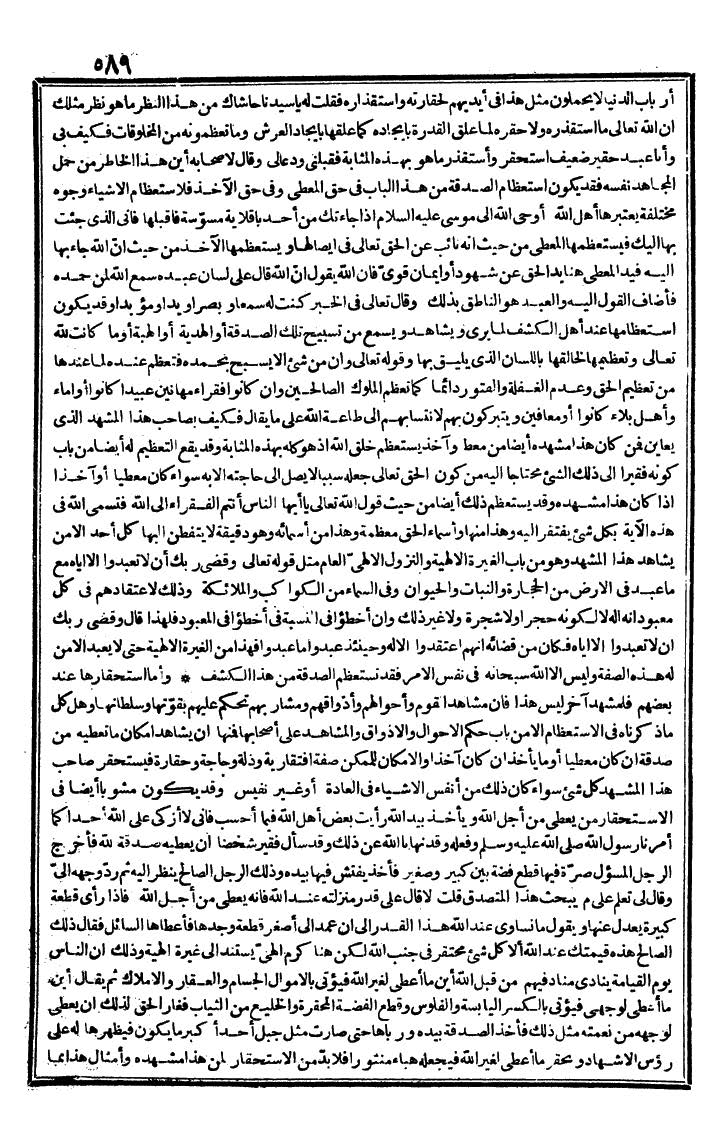 ٥٨٩
أرباب الدنيا لا يحملون مثل هذا في أيديهم لحقارته واستقذاره فقلت له يا سيدنا حاشاك من هذا النظر ما هو نظر مثلك
ان الله تعالى ما استقذره ولا حقره لما علق القدرة بايجاده كما علقها بايجاد العرش وما تعظمونه من المخلوقات فكيف بي
وأنا عبد حقير ضعيف استحقر وأستقذر ما هو بهذه المثابة فقبلني ودعا لي وقال لاصحابه أين هذا الخاطر من حمل
المجاهد نفسه فقد يكون استعظام الصدقة من هذا الباب في حق المعطي وفي حق الآخذ فلاستعظام الاشياء وجوه
مختلفة يعتبرها أهل الله أوحى الله الى موسى عليه السلام اذا جاءتك من أحد باقلاية مسوّسة فاقبلها فاني الذي جئت
بها اليك فيستعظمها المعطي من حيث انه نائب عن الحق تعالى في ايصالها ويستعظمها الآخذ من حيث انّ الله جاء بها
اليه فيد المعطي هنا يد الحق عن شهود أو ايمان قويّ فان الله يقول انّ الله قال على لسان عبده سمع الله لمن حمده
فأضاف القول اليه والعبد هو الناطق بذلك وقال تعالى في الخبر كنت له سمعا وبصرا ويدا ومؤيدا وقد يكون
استعظامها عند أهل الكشف لما يرى ويشاهد ويسمع من تسبيح تلك الصدقة أو الهدية أو الهبة أو ما كانت لله
تعالى وتعظيمها لخالقها باللسان الذي يليق بها وقوله تعالى وان من شئ الا يسبح بحمده فتعظم عنده لما عندها
من تعظيم الحق وعدم الغفلة والفتور دائما كما تعظم الملوك الصالحين وان كانوا فقراء مهانين عبيدا كانوا أو اماء
وأهل بلاء كانوا أو معافين ويتبركون بهم لانتسابهم الى طاعة الله على ما يقال فكيف بصاحب هذا المشهد الذي
يعاين فمن كان هذا مشهده أيضا من معط وآخذ يستعظم خلق الله اذ هو كله بهذه المثابة وقد يقع التعظيم له أيضا من باب
كونه فقيرا الى ذلك الشئ محتاجا اليه من كون الحق تعالى جعله سببا لا يصل الى حاجته الا به سواء كان معطيا أو آخذا
اذا كان هذا مشهده وقد يستعظم ذلك أيضا من حيث قول الله تعالى يا أيها الناس أنتم الفقراء الى الله فتسمى الله في
هذه الآية بكل شئ يفتقر اليه وهذا منها وأسماء الحق معظمة وهذا من أسمائه وهو دقيقة لا يتفطن اليها كل أحد الا من
يشاهد هذا المشهد وهو من باب الغيرة الالهية والنزول الالهيّ العام مثل قوله تعالى وقضى ربك أن لا تعبدوا الا اياه مع
ما عبد في الارض من الحجارة والنبات والحيوان وفي السماء من الكواكب والملائكة وذلك لاعتقادهم في كل
معبود انه اله لا لكونه حجرا ولا شجرة ولا غير ذلك وان أخطؤا في النسبة فما أخطؤا في المعبود فلهذا قال وقضى ربك
ان لا تعبدوا الا اياه فكان من قضائه انهم اعتقدوا الاله وحينئذ عبدوا ما عبدوا فهذا من الغيرة الالهية حتى لا يعبد الا من
له هذه الصفة وليس الا الله سبحانه في نفس الامر فقد تستعظم الصدقة من هذا الكشف * وأما استحقارها عند
بعضهم فلمشهد آخر ليس هذا فان مشاهد القوم وأحوالهم وأذواقهم ومشاربهم تتحكم عليهم بقوّتها وسلطانها وهل كل
ما ذكرناه في الاستعظام الا من باب حكم الاحوال والاذواق والمشاهد على أصحابها فمنها ان يشاهد امكان ما تعطيه من
صدقة ان كان معطيا أو ما يأخذ ان كان آخذا والامكان للممكن صفة افتقارية وذلة وحاجة وحقارة فيستحقر صاحب
هذا المشهد كل شئ سواء كان ذلك من أنفس الاشياء في العادة أو غير نفيس وقد يكون مشوبا أيضا في
الاستحقار من يعطي من أجل الله ويأخذ بيد الله رأيت بعض أهل الله فيما أحسب فاني لا أزكي على الله أحدا كما
أمرنا رسول الله صلى الله عليه وسلم وفعله وقد نهانا الله عن ذلك وقد سأل فقير شخصا ان يعطيه صدقة لله فأخرج
الرجل المسؤل صرّة فيها قطع فضة بين كبير وصغير فأخذ يفتش فيها بيده وذلك الرجل الصالح ينظر اليه ثم ردّ وجهه اليّ
وقال لي تعلم على م يبحث هذا المتصدق قلت لا قال على قدر منزلته عند الله فانه يعطي من أجل الله فاذا رأى قطعة
كبيرة يعدل عنها ويقول ما تساوي عند الله هذا القدر الى ان عمد الى أصغر قطعة وجدها فأعطاها السائل فقال ذلك
الصالح هذه قيمتك عند الله ألا كل شئ محتقر في جنب الله لكن هنا كرم الهيّ يستند الى غيرة الهية وذلك ان الناس
يوم القيامة ينادي مناد فيهم من قبل الله أين ما أعطي لغير الله فيؤتى بالاموال الجسام والعقار والاملاك ثم يقال أين
ما أعطي لوجهي فيؤتى بالكسر اليابسة والفلوس وقطع الفضة المحقرة والخليع من الثياب فغار الحق لذلك ان يعطي
لوجهه من نعمته مثل ذلك فأخذ الصدقة بيده ورباها حتى صارت مثل جبل أحد أكبر ما يكون فيظهرها له على
رؤس الاشهاد ويحقر ما أعطي لغير الله فيجعله هباء منثورا فلا بدّ من الاستحقار لمن هذا مشهده وأمثال هذا مما